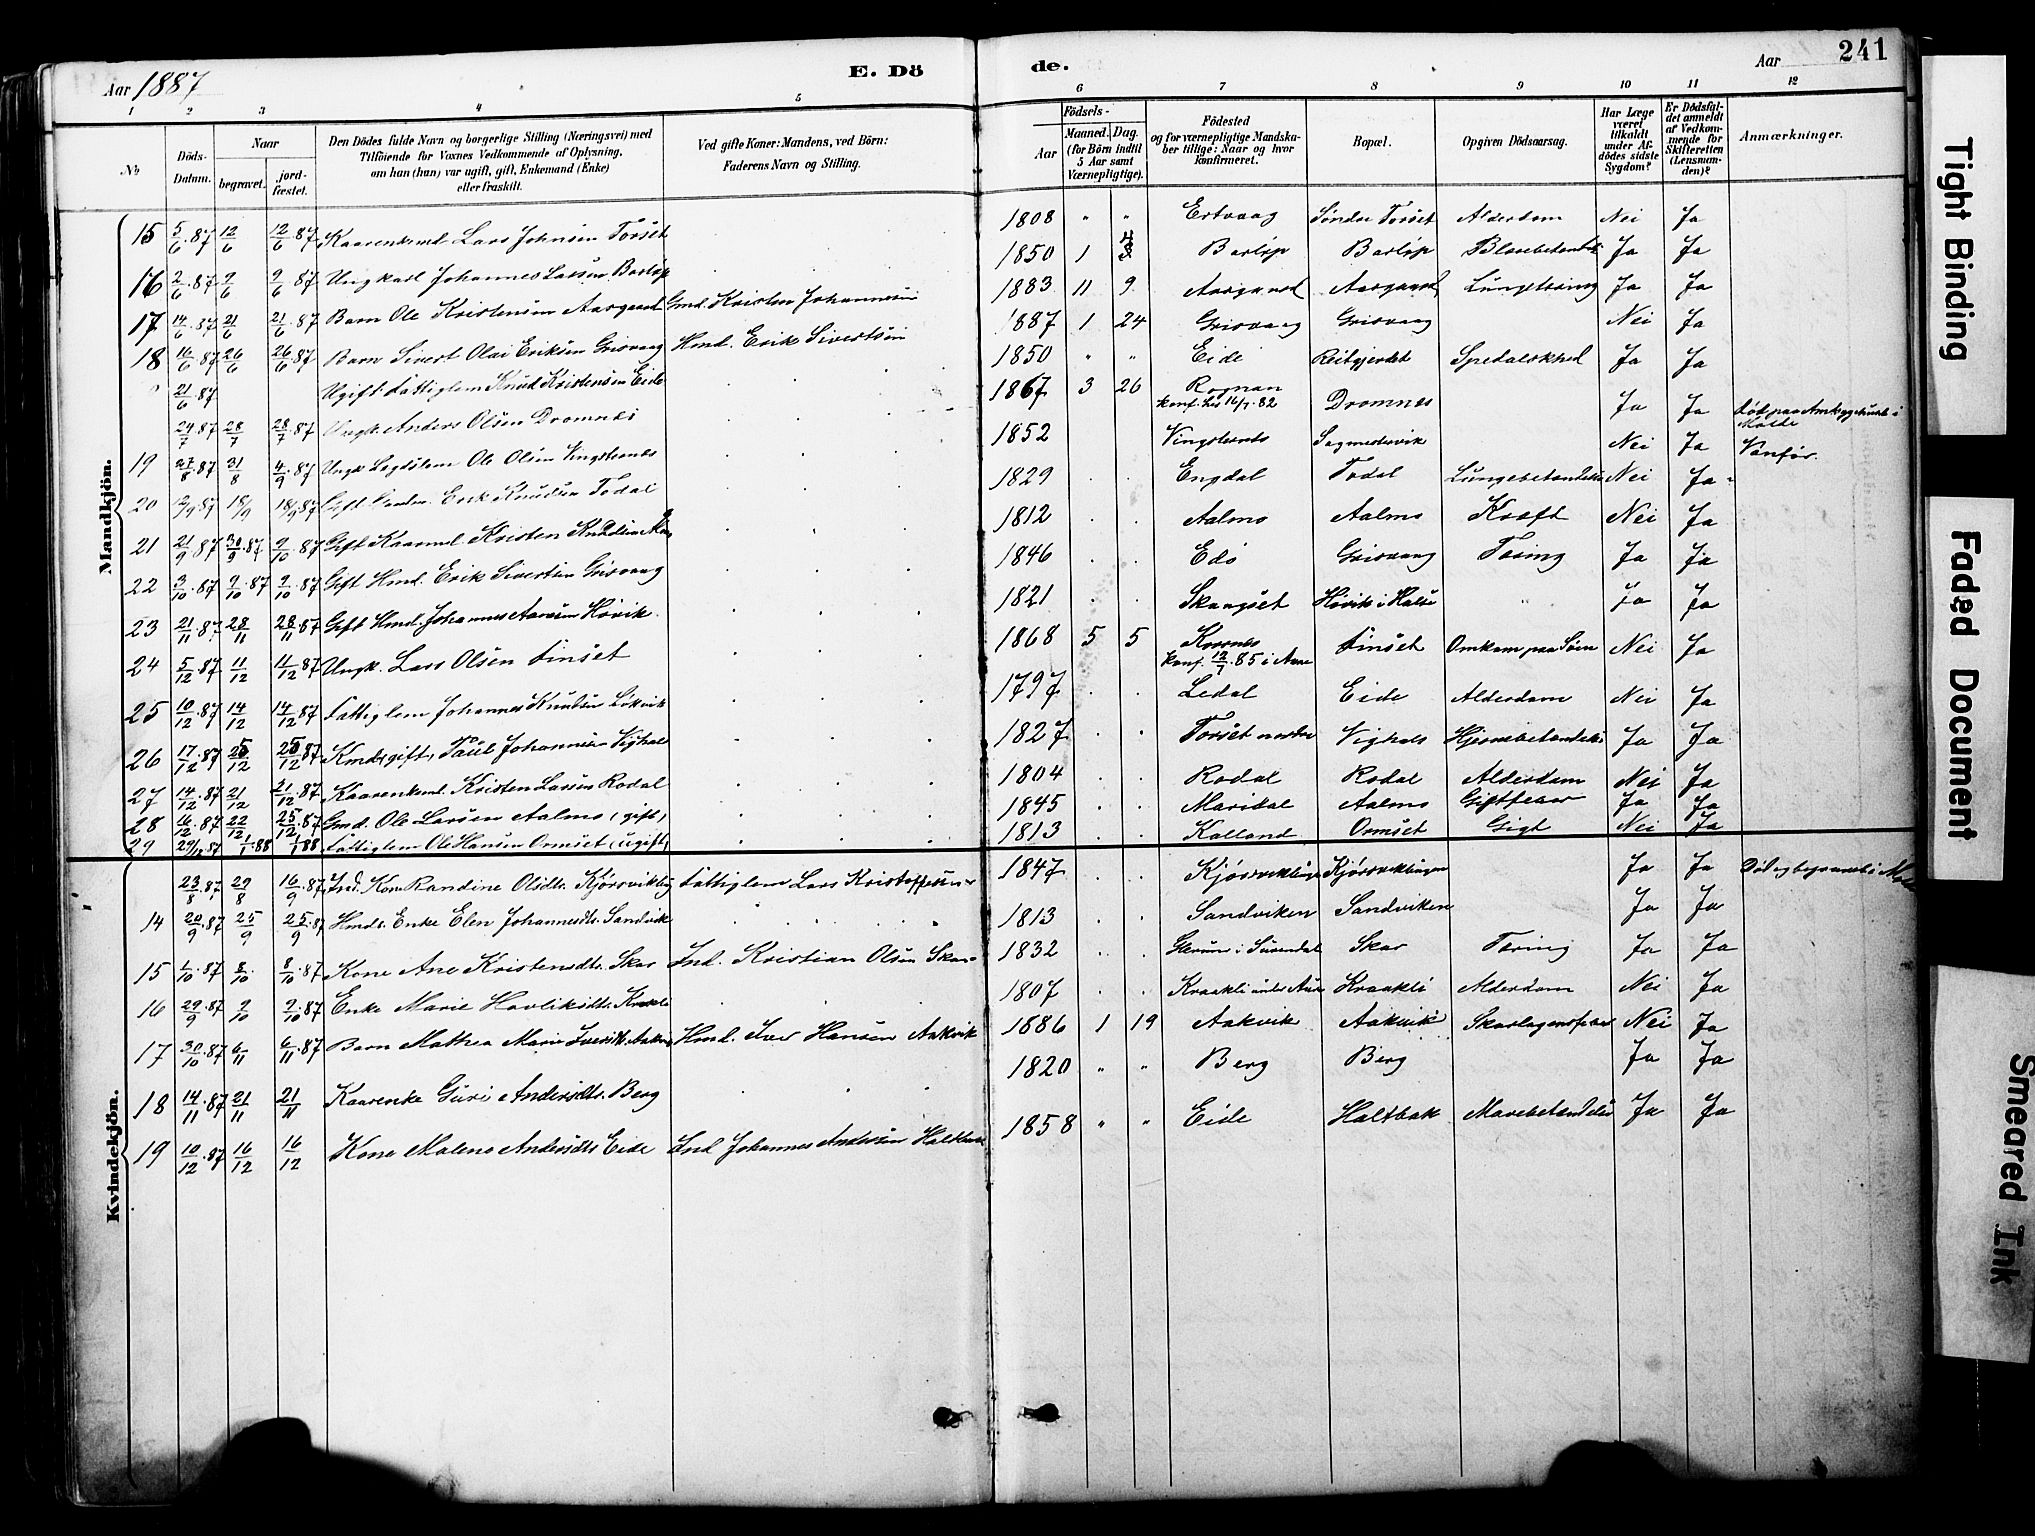 Aar 1887 E. Dö de. Aar 241
1 2 3 4 5 6 7 8 9 10 11 12
No
Döds-Datum.
Naar begravet. jord-fæstet.
Den Dödes fulde Navn og borgerlige Stilling (Næringsvei) med Tilföiende for Voxnes Vedkommende af Oplysning, om han (hun) var ugift, gift, Enkemand (Enke) eller fraskilt.
Ved gifte Koner: Mandens, ved Börn: Faderens Navn og Stilling.
Födsels- Aar Maaned. Dag. (for Börn indtil 5 Aar samt Værnepligtige).
Födested og for værnepligtige Mandskaber tillige: Naar og hvor konfirmeret.
Bopæl.
Opgiven Dödsaarsag.
Har Læge været tilkaldt under Afdödes sidste Sygdom?
Er Dödsfaldet anmeldt af Vedkommende for Skifteretten (Lensmanden)?
Anmærkninger.
Mandkjön.
15 5/6.87 12/6 12/6.87 Kaarenkmd Lars Johnsen Torset 1808 " " Ertvaag Söndre Torset Alderdom Nei Ja
16 2/6.87 9/6 9/6.87 Ungkarl Johannes Larsen Bærlöp 1850 1 Ja Ja
17 14/6.87 21/6 21/6.87 Barn Ole Kristensen Aasgaard Gmd. Kristen Johannesen 1883 11 9 Aasgaard Aasgaard Ja Ja
18 16/6.87 26/6 26/6.87 Barn Sivert Olai Eriksen Grisvaag Hmd. Erik Sivertsen 1887 1 24 Grisvaag Grisvaag Nei Ja
21/6.87 Ugift Fattiglem Knud Kristensen Eide 1850 " " Eide Reitgjerdet Spedalskhed Ja Ja
24/7.87 28/7 28/7.87 Ungk. Anders Olsen Dromnes 1867 3 26 Rognan konf. 16/7.82 Dromnes Ja Ja Död paa Amtssygehuset i Molde
19 27/8.87 31/8 4/9.87 Ungk. Legdslem Ole Olsen Vingsternes 1852 Vingsternes Nei Ja Vanför.
20 12/9.87 18/9 18/9.87 Gift Erik Knudsen Todal 1829 Engdal Todal Lungebetændelse Nei Ja
21 21/9.87 30/9.87 9/10.87 Gift Kaarmd. Kristen Knudsen 1812 Aalmo Aalmo Kræft Nei Ja
22 3/10.87 9/10.87 9/10.87 Gift Hmd. Erik Sivertsen Grisvaag 1846 Edö Grisvaag Tæring Ja Ja
23 21/11.87 28/11 28/11.87 Gift Hmd. Johannes Aansen Hövik 1821 Skangset Hövik i Halse " Ja Ja
24 5/12.87 11/12 11/12.87 Ungk. Lars Olsen Finset 1868 5 5 Korsnes konf. 12/7.85 i Aure Finset Omkom paa Söen Nei Ja
25 10/12.87 14/12 14/12.87 Fattiglem Johannes Knudsen Lökvik 1797 Ledal Eide Alderdom Nei Ja
26 17/12.87 25/12 25/12.87 Kmd. gift, Paul Johannesen Vighals 1827 Torset nordre Vighals Hjernebetændelse Ja Ja
27 14/12.87 21/12 21/12.87 Kaarenkmd. Kristen Larsen Rodal 1804 Rodal Rodal Alderdom Nei Ja
28 16/12.87 22/12 25/12.87 Gmd. Ole Larsen Aalmo (gift) 1845 Maridal Aalmo Giftfeber Ja Ja
29 29/12.87 1/1.88 1/1.88 Fattiglem Ole Hansen Ormset (ugift) 1813 Kalland Ormset Gigt Nei Ja
Kvindekjön.
23/8.87 29/8 16/9.87 Ind. Kone Randine Olsdtr. Kjörsvikbug Fattiglem Lars Kristoffersen 1847 Kjörsvikbugen Kjörsvikbugen Ja Ja
14 20/9.87 25/9 25/9.87 Hmds. Enke Elen Johannesdtr. Sandvik 1813 Sandviken Sandviken Ja Ja
15 1/10.87 8/10 8/10.87 Kone Ane Kristensdtr. Skar Ind. Kristian Olsen Skar 1832 Glærum i Surendal Skar Tæring Ja Ja
16 29/9.87 9/10 9/10.87 Enke Marie Havliksdtr. Kraakli 1807 Kraakli Kraakli Alderdom Nei Ja
17 30/10.87 6/11 6/11.87 Barn Mathea Marie Iversdtr. Aakvik Hmd. Iver Hansen Aakvik 1886 1 19 Aakvik Aakvik Skarlagensfeber Nei Ja
18 14/11.87 21/11 21/11 Kaarenke Guri Andersdtr. Berg 1820 " " Berg Berg Ja Ja
19 10/12.87 16/12 16/12 Kone Malene Andersdtr Eide Ind Johannes Andersen Haltbak 1858 " " Eide Haltbak Mavebetændelse Ja Ja
Tight Binding
Faded Document
Smeared Ink